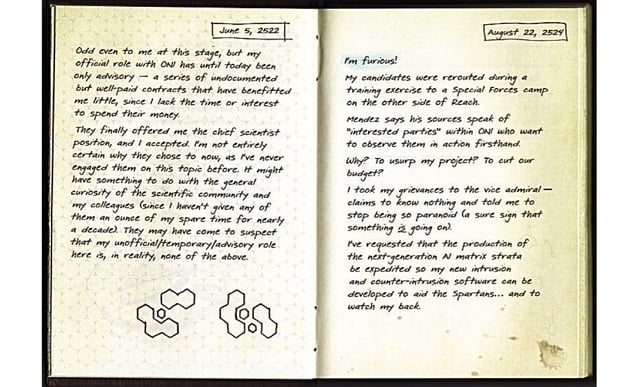 June 5, 2522
Odd even to me at this stage, but my
official role with ONI has until today been
only advisory — a series of undocumented
but well-paid contracts that have benefitted
me little, since I lack the time or interest
to spend their money.
They finally offered me the chief scientist
position, and I accepted. I'm not entirely
certain why they chose to now, as I've never
engaged them on this topic before. It might
have something to do with the general
curiosity of the scientific community and
my colleagues (since I haven't given any of
them an ounce of my spare time for nearly
a decade). They may have come to suspect
that my unofficial/temporary/advisory role
here is, in reality, none of the above.
August 22, 2524
I'm furious!
My candidates were rerouted during a
training exercise to a Special Forces camp
on the other side of Reach.
Mendez says his sources speak of
"interested parties" within ONI who want
to observe them in action firsthand.
Why? To usurp my project? To cut our
budget?
I took my grievances to the vice admiral —
claims to know nothing and told me to
stop being so paranoid (a sure sign that
something is going on).
I've requested that the production of
the next-generation AI matrix strata
be expedited so my new intrusion
and counter-intrusion software can be
developed to aid the Spartans... and to
watch my back.